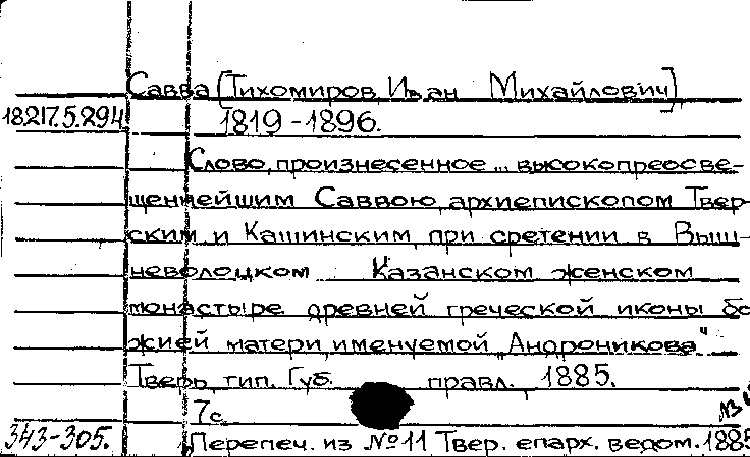 Савва [Тихомиров, Иван Михайлович]
18.217.5.294 1819-1896.
Слово, произнесенное... высокопреосве-
щеннейшим Саввою, архиепископом Твер-
ским и Кашинским, при сретении в Выш-
неволоцком Казанском женском
монастыре древней греческой иконы бо-
жией матери, именуемой „Андроникова"
Тверь, тип. Губ. правл., 1885.
7с.
343-305. Перепеч. из №11 Твер. епарх. ведом. 1885